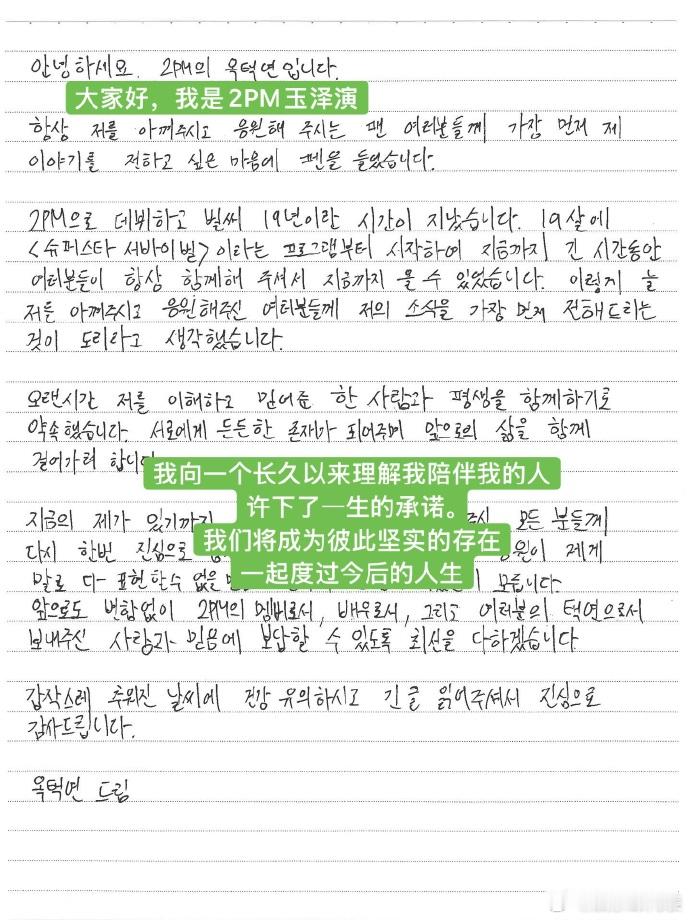 안녕하세요. 2PM의 옥택연입니다.
大家好，我是2PM玉泽演
항상 저를 아껴주시고 응원해 주시는 팬 여러분들께 가장 먼저 제
이야기를 전하고 싶은 마음에 펜을 들었습니다.
2PM으로 데뷔하고 벌써 19년이란 시간이 지났습니다. 19살에
<슈퍼스타 서바이벌>이라는 프로그램부터 시작하여 지금까지 긴 시간동안
여러분들이 항상 함께해 주셔서 지금까지 올 수 있었습니다. 이렇게 늘
저를 아껴주시고 응원해주신 여러분들께 저의 소식을 가장 먼저 전해드리는
것이 도리라고 생각했습니다.
오랜시간 저를 이해하고 믿어준 한 사람과 평생을 함께하기로
약속했습니다. 서로에게 든든한 존재가 되어주며 앞으로의 삶을 함께
걸어가려 합니다
我向一个长久以来理解我陪伴我的人
许下了一生的承诺。
我们将成为彼此坚实的存在
一起度过今后的人生
지금의 제가 있기까지 모든 분들께
다시 한번 진심으로 응원이 제게
말로 다 표현할수 없을 모릅니다.
앞으로도 변함없이 2PM의 멤버로서, 배우로서, 그리고 여러분의 택연으로서
보내주신 사랑과 믿음에 보답할 수 있도록 최선을 다하겠습니다
갑작스레 추워진 날씨에 건강 유의하시고 긴 글 읽어주셔서 진심으로
감사드립니다.
옥택연 드림